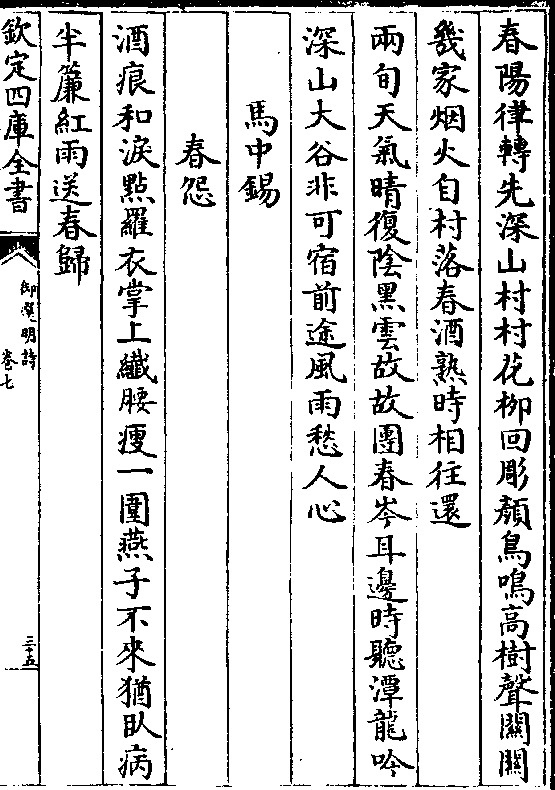 春陽律轉先深山村村花柳回彫顏鳥鳴高樹聲關關
幾家烟火自村落春酒熟時相往還
兩旬天氣晴復陰黑雲故故團春岑耳邊時聽潭龍吟
深山大谷非可宿前途風雨愁人心
馬中錫
春怨
酒痕和淚㸃羅衣掌上纖腰瘦一圍燕子不來猶臥病
半簾紅雨送春歸
欽定四庫全書
御選明詩
卷七
三十五